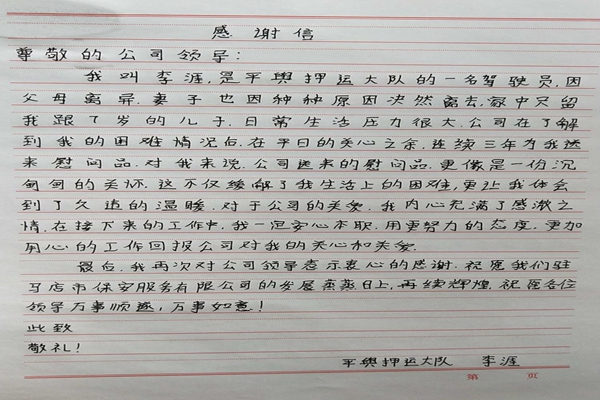 感谢信
尊敬的公司领导:
我叫李涯,是平舆押运大队的一名驾驶员,因
父母离异.妻子也因种种原因决然离去.家中只留
我跟7岁的儿子.日常生活压力很大.公司在了解
到我的困难情况后.在平日的关心之余.连续三年为我送
来慰问品.对我来说.公司送来的慰问品.更像是一份沉
甸甸的关怀.这不仅缓解了我生活上的困难,更让我体会
到了久违的温暖.对于公司的关爱.我内心充满了感激之
情.在接下来的工作中.我一定安心本职.用更努力的态度.更加
用心的工作回报公司对我的关心和关爱.
最后.我再次对公司领导表示衷心的感谢.祝愿我们驻
马店市保安服务有限公司的发展蒸蒸日上,再续辉煌.祝愿各位
领导万事顺遂,万事如意!
此致
敬礼!
平舆押运大队 李涯
第 页